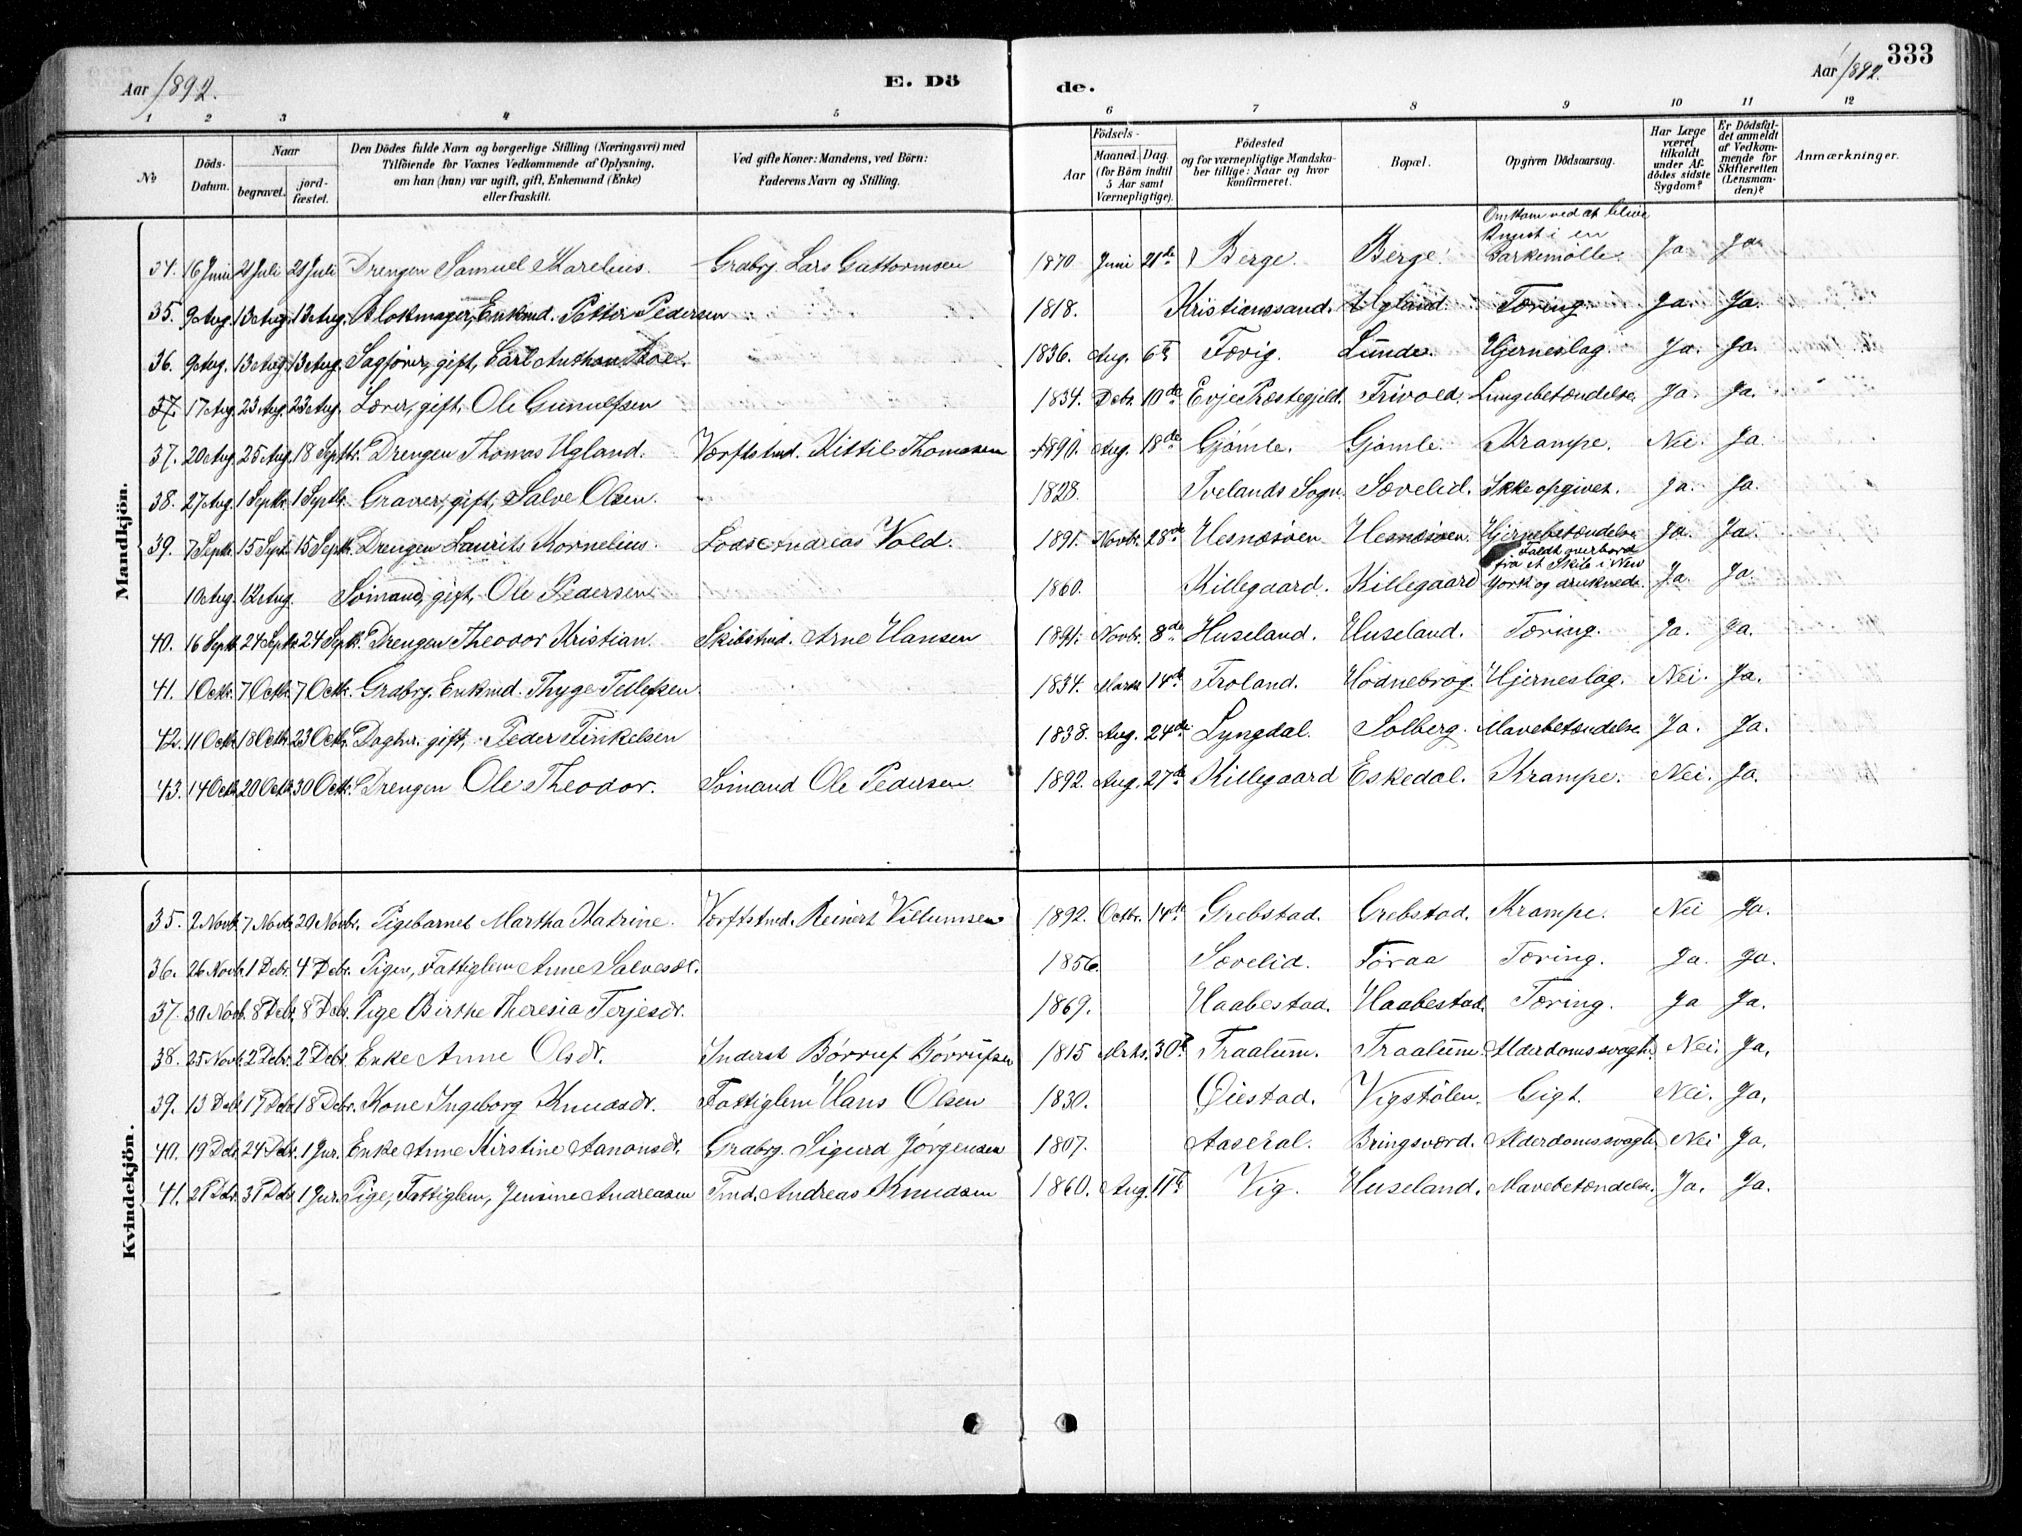 333
Aar 1892.
E. Dö
de.
Aar 1892.
1 2 3 4 5 6 7 8 9 10 11 12
No
Döds-Datum.
Naar
begravet.
jord-fæstet.
Den Dödes fulde Navn og borgerlige Stilling (Næringsvei) med
Tilföiende for Voxnes Vedkommende af Oplysning,
om han (hun) var ugift, gift, Enkemand (Enke)
eller fraskilt.
Ved gifte Koner: Mandens, ved Börn:
Faderens Navn og Stilling.
Födsels-
Aar
Maaned. Dag.
(for Börn indtil
5 Aar samt
Værnepligtige).
Födested
og for værnepligtige Mandska-
ber tillige: Naar og hvor
konfirmeret.
Bopæl.
Opgiven Dödsaarsag.
Har Læge
været
tilkaldt
under Af-
dödes sidste
Sygdom?
Er Dödsfal-
det anmeldt
af Vedkom-
mende for
Skifteretten
(Lensman-
den)?
Anmærkninger.
Mandkjön.
34. 16 Juni 21 Juli 21 Juli Drengen Samuel Marelius. Grdbrg. Lars Guttormsen 1870 Juni 21de Berge. Berge. Omkom ved at blive knust i en Barkemølle. Ja Ja
35. 9 Aug. 13 Aug. 13 Aug. Blokmager, Enkmd. Petter Pedersen 1818. Kristianssand. Ugland. Tæring. Ja. Ja.
36. 9 Aug. 13 Aug. 13 Aug. Sagfører, gift, Carl Anthon 1836. Aug. 6te Fævig. Lunde. Hjerneslag. Ja. Ja.
37. 17 Aug. 23 Aug. 23 Aug. Lærer, gift, Ole Gunulfsen 1834. Debr. 10de Evje Præstegjeld. Frivold. Lungebetændelse. Ja. Ja.
37. 20 Aug. 25 Aug. 18 Septbr. Drengen Thomas Ugland. Værftstmd. Kittil Thomassen 1890. Aug. 18de Gjømle. Gjømle. Krampe. Nei. Ja.
38. 27 Aug. 1 Septbr. 1 Septbr. Graver, gift, Salve Olsen. 1828. Ivelands Sogn. Sævelid. Ikke opgivet. Ja. Ja.
39. 7 Septbr. 15 Sept. 15 Septbr. Drengen Laurits Kornelius. Lods Andreas Vold. 1891. Novbr. 28de Hesnæsøen Hesnæsøen. Hjernebetændelse Ja. Ja.
10 Aug. 12 Aug. Sømand, gift, Ole Pedersen 1860. Killegaard. Killegaard Faldt overbord fra et Skib i New York og druknede. Ja. Ja.
40. 16 Septb. 24 Septbr. 24 Septbr. Drengen Theodor Kristian. Skibstmd. Arne Hansen 1891. Novbr. 8de Huseland. Huseland. Tæring. Ja. Ja.
41. 1 Octbr. 7 Octbr. 7 Octbr. Grdbrg. Enkmd. Thyge Tellefsen 1834. Marts 14de Froland. Hodnebrog. Hjerneslag. Nei. Ja.
42. 11 Octbr. 18 Octbr. 23 Octbr. Daglnr. gift, Peder Finkelsen 1838. Aug. 24de Lyngdal. Solberg. Mavebetændelse Ja. Ja.
43. 14 Octbr. 20 Octbr. 30 Octbr. Drengen Ole Theodor. Sømand Ole Pedersen 1892. Aug. 27de Killegaard Eskedal. Krampe. Nei. Ja.
Kvindekjön.
35. 2 Novb. 7 Novbr. 20 Novbr. Pigebarnet Martha Katrine. Værftstmd. Reinert Villumsen 1892. Octbr. 14de Grebstad. Grebstad. Krampe. Nei Ja.
36. 26 Novb. 1 Debr. 4 Debr. Pigen, Fattiglem Anne Salvesdr. 1856. Sævelid. Føraa Tæring. Ja. Ja.
37. 30 Novb. 8 Debr. 8 Debr. Pige Birthe Theresia Terjesdr. 1869. Haabestad. Haabestad. Tæring. Ja Ja.
38. 25 Novb. 2 Debr. 2 Debr. Enke Anne Olsdr. Inderst Børruf Børrufsen 1815 Mrts. 30te Traalum. Traalum. Alderdomssvagh. Nei. Ja.
39. 13 Debr. 17 Debr. 18 Debr. Kone Ingeborg Knudsdr. Fattiglem Hans Olsen 1830. Øiestad. Vigstølen. Gigt. Nei. Ja.
40. 19 Debr. 24 Debr. 1 Jnr. Enke Anne Kirstine Aanonsdr. Grdbrg. Sigurd Jørgensen 1807. Aaseral. Bringsværd. Alderdomssvagh. Nei Ja.
41. 21 Debr. 31 Debr. 1 Jnr. Pige, Fattiglem, Jensine Andreasen Tmd. Andreas Knudsen 1860. Aug. 11te Vig. Huseland. Mavebetændelse. Ja. Ja.